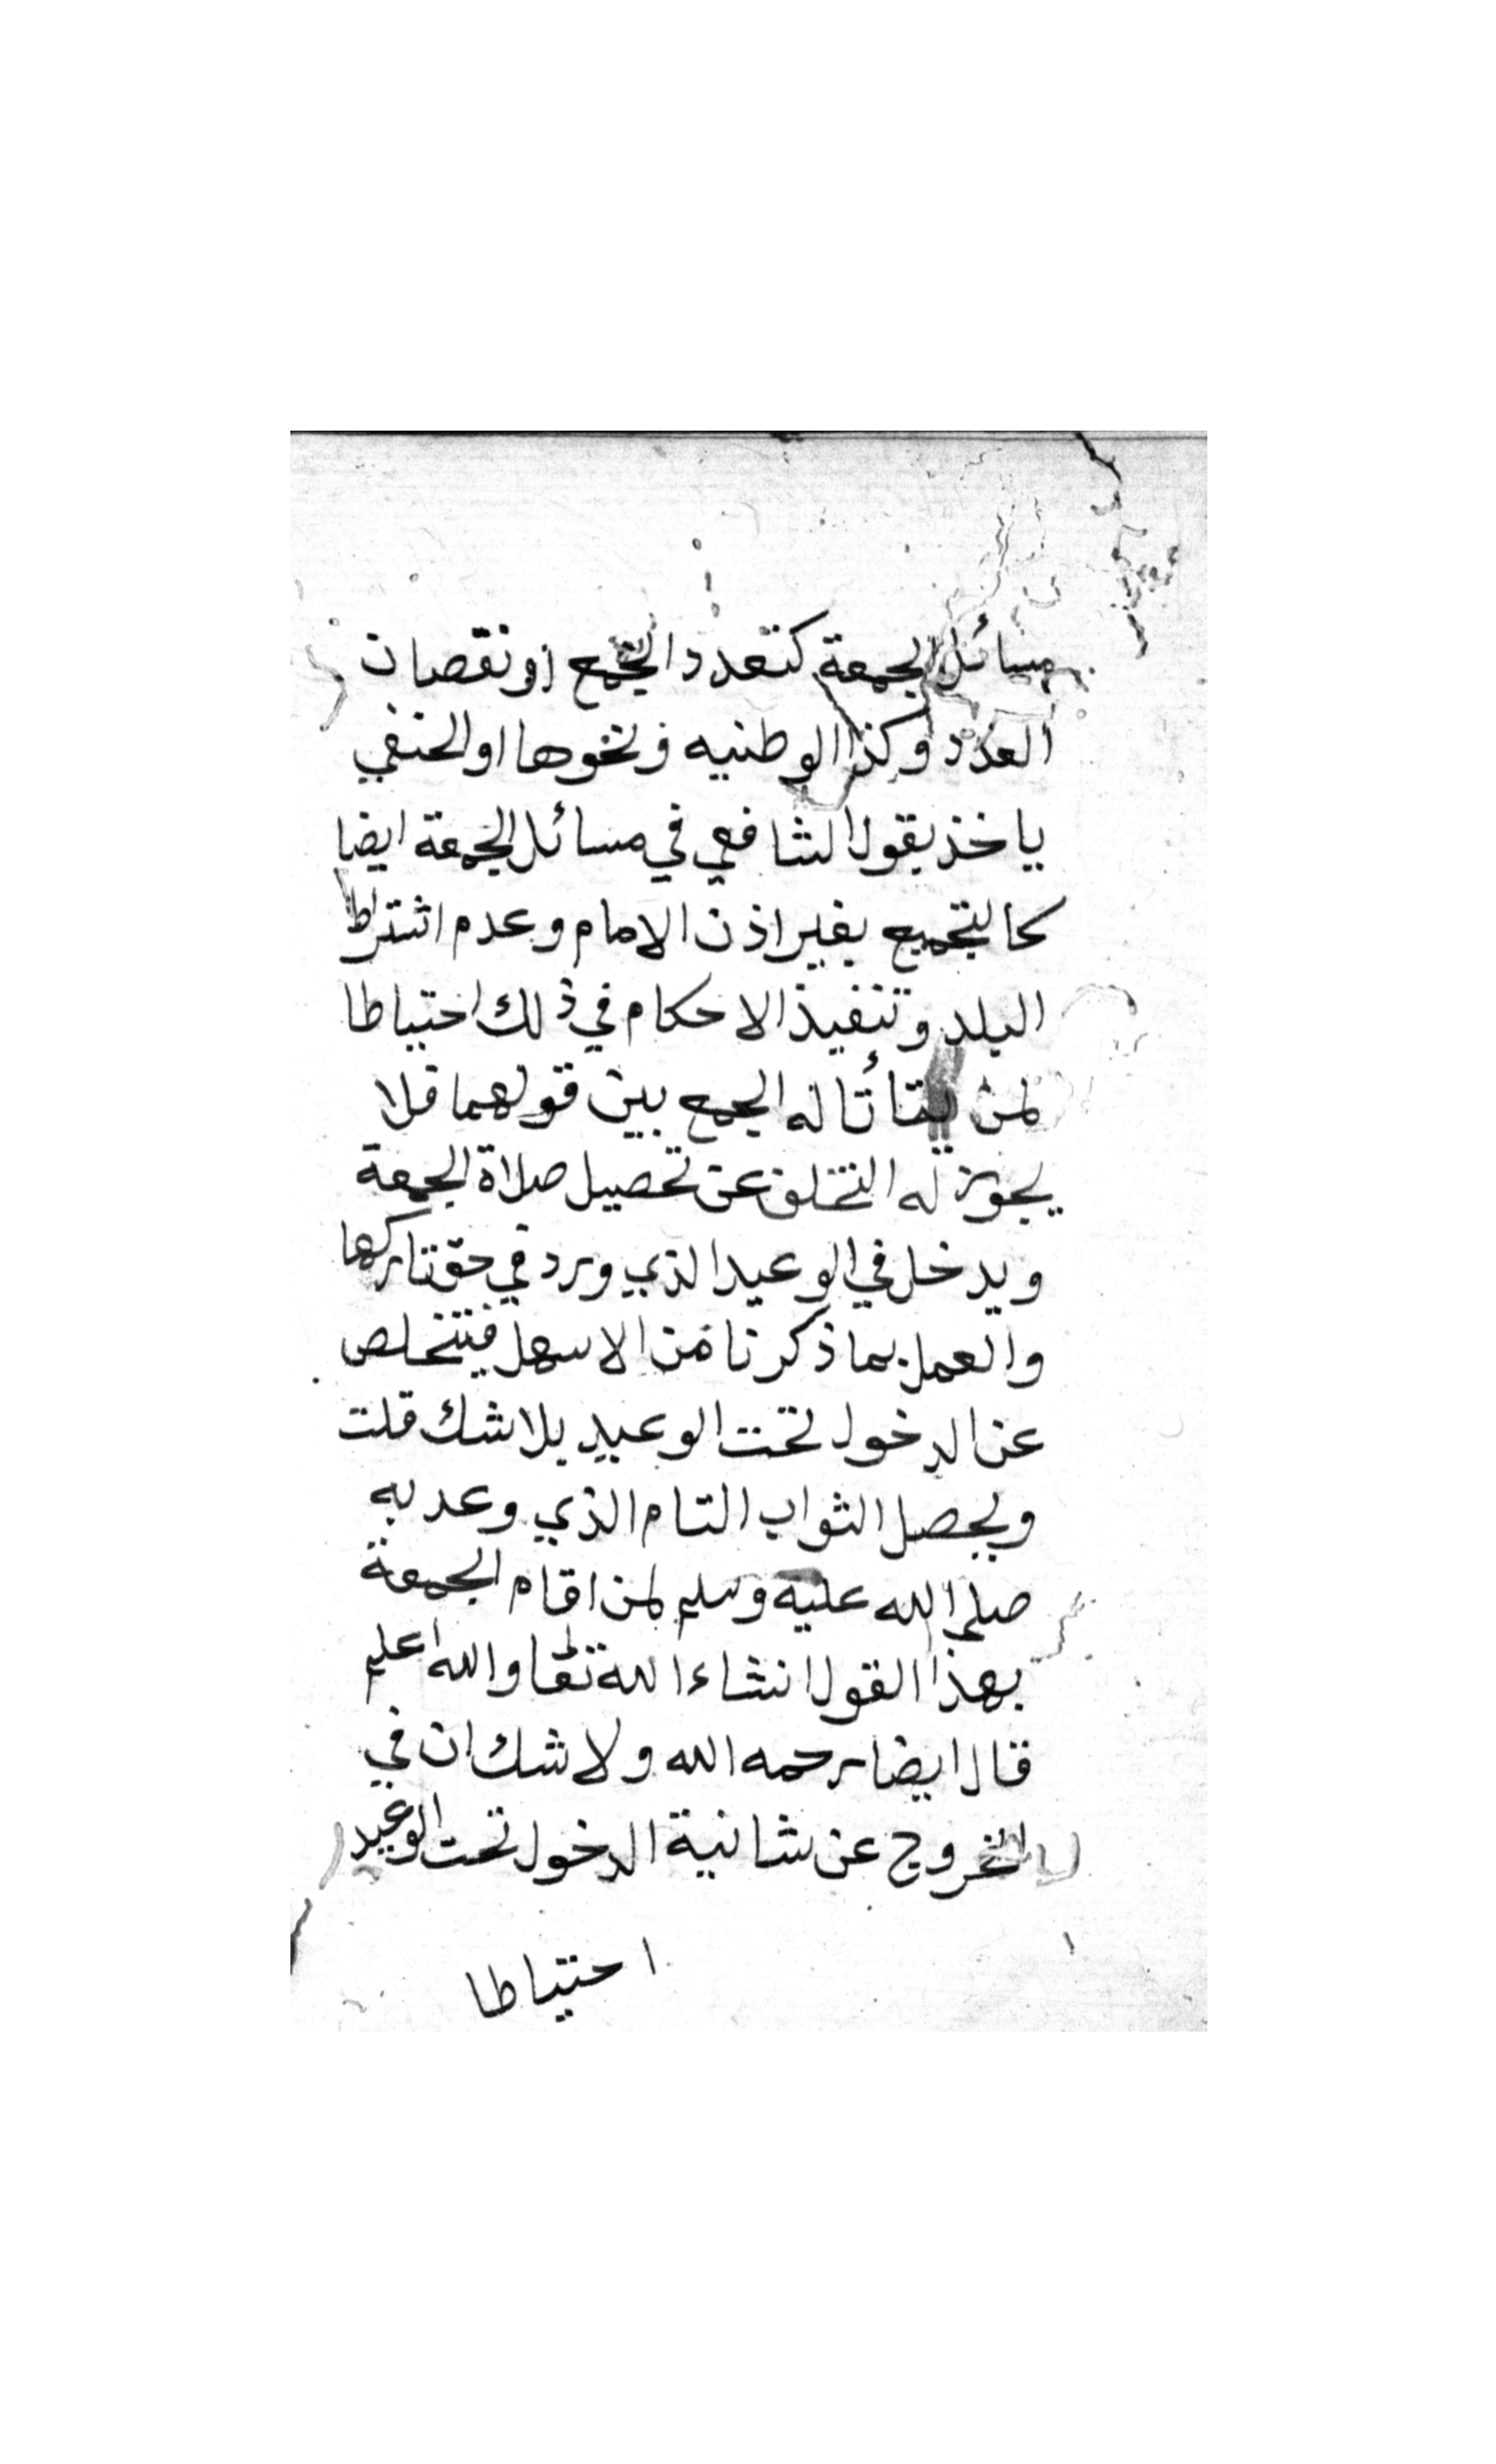 مسائل الجمعة كتعدد الجمع او نقصان
العدد وكذا الوطنيه ونخوها او الحنفي
ياخذ بقول الشافعي في مسائل الجمعة ايضا
كالتجميع بغير اذن الامام وعدم اشتراط
البلد وتنفيذ الاحكام في ذلك احتياطا
لمن يتأتا له الجمع بين قولهما فلا
يجوز له التخلف عن تحصيل صلاة الجمعة
ويدخل في الوعيد الذي ورد في حق تاركها
والعمل بما ذكرنا من الاسهل فيتخلص
عن الدخول تحت الوعيد بلا شك قلت
ويحصل الثواب التام الذي وعد به
صلى الله عليه وسلم لمن اقام الجمعة
بهذا القول انشاء الله تعا والله اعلم
قال ايضا رحمه الله ولا شك ان في
الخروج عن شانية الدخول تحت الوعيد
احتياطا